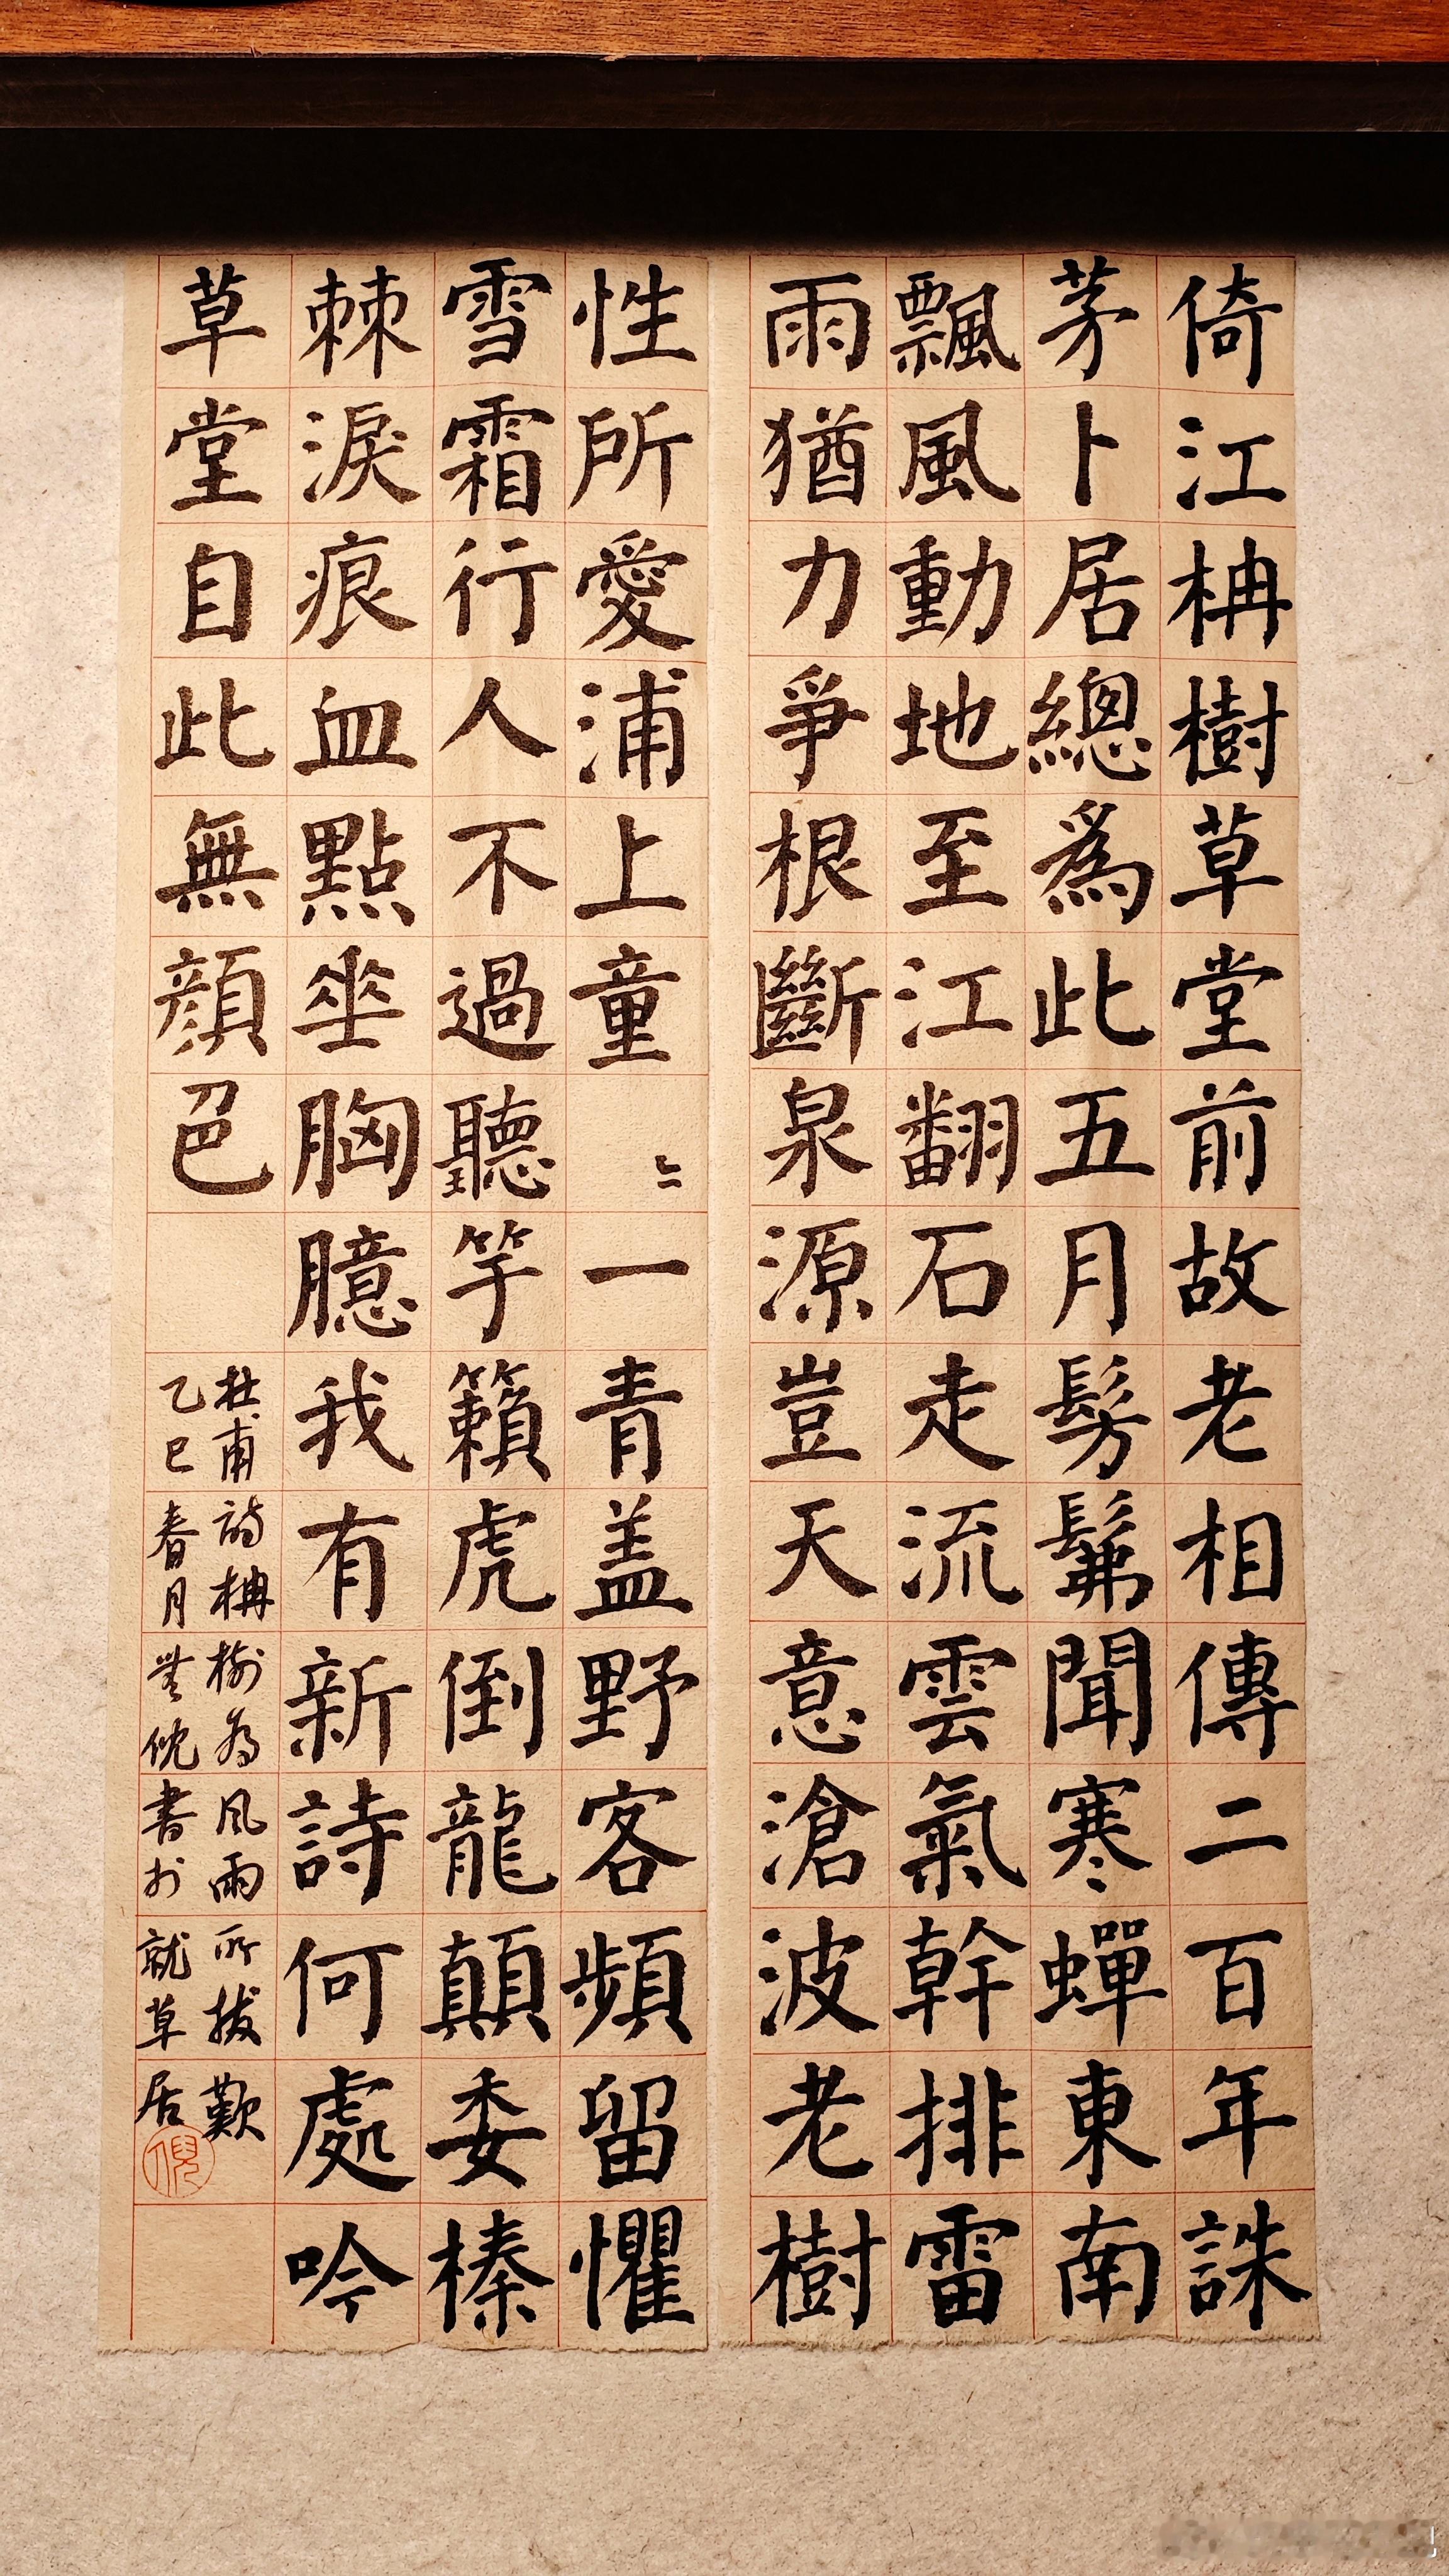 倚江柟樹草堂前故老相傳二百年誅
茅卜居總爲此五月髣髴聞寒蟬東南
飄風動地至江翻石走流雲氣幹排雷
雨猶力爭根斷泉源豈天意滄波老樹
性所愛浦上童〻一青盖野客頻留懼
雪霜行人不過聽竽籟虎倒龍顛委榛
棘淚痕血點𠌶胸臆我有新詩何處吟
草堂自此無顏色
杜甫詩柟樹為風雨所拔歎
乙巳春月無倪書於就草居
倪